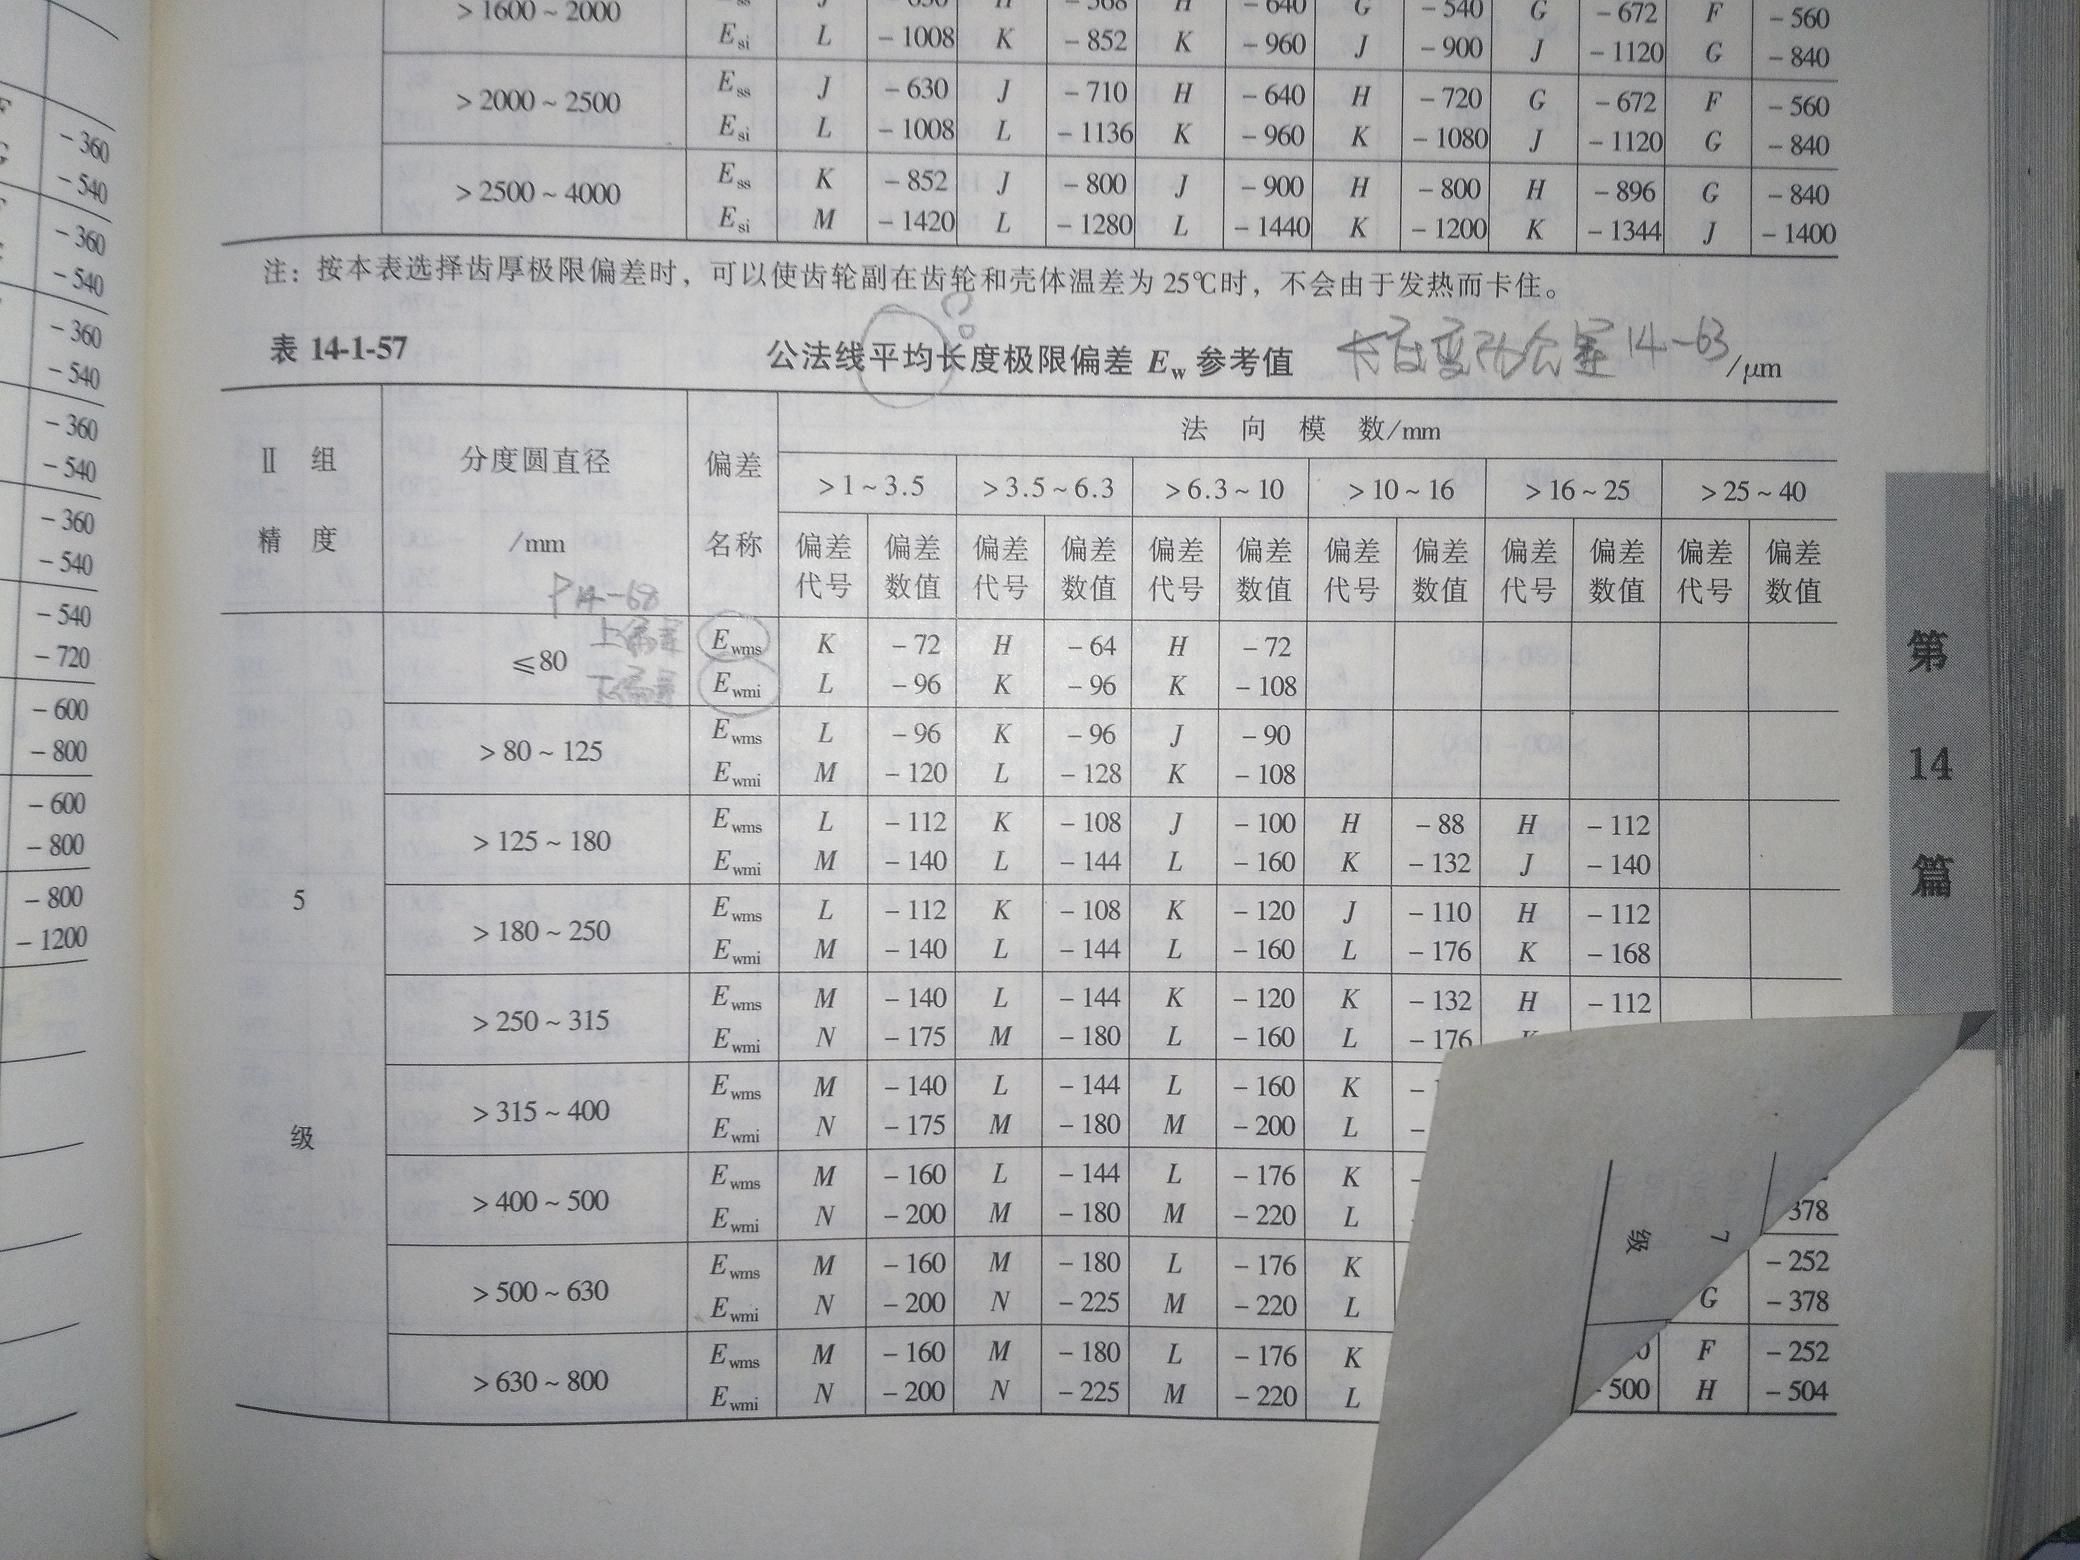 >1600~2000 J -630 H -568 H -640 G -540 G -672 F -560
Esi L -1008 K -852 K -960 J -900 J -1120 G -840
>2000~2500 Ess J -630 J -710 H -640 H -720 G -672 F -560
Esi L -1008 L -1136 K -960 K -1080 J -1120 G -840
>2500~4000 Ess K -852 J -800 J -900 H -800 H -896 G -840
Esi M -1420 L -1280 L -1440 K -1200 K -1344 J -1400
注：按本表选择齿厚极限偏差时，可以使齿轮副在齿轮和壳体温差为 25℃时，不会由于发热而卡住。
表 14-1-57 公法线平均长度极限偏差 Ew 参考值 长度变动公差 14-63 /μm
Ⅱ 组 精 度 分度圆直径 /mm 偏差 名称 法 向 模 数/mm
>1~3.5 >3.5~6.3 >6.3~10 >10~16 >16~25 >25~40
偏差 偏差 偏差 偏差 偏差 偏差 偏差 偏差 偏差 偏差 偏差 偏差
代号 数值 代号 数值 代号 数值 代号 数值 代号 数值 代号 数值
P14-68
≤80 上偏差 Ewms K -72 H -64 H -72
下偏差 Ewmi L -96 K -96 K -108
>80~125 Ewms L -96 K -96 J -90
Ewmi M -120 L -128 K -108
>125~180 Ewms L -112 K -108 J -100 H -88 H -112
Ewmi M -140 L -144 L -160 K -132 J -140
5 级
>180~250 Ewms L -112 K -108 K -120 J -110 H -112
Ewmi M -140 L -144 L -160 L -176 K -168
>250~315 Ewms M -140 L -144 K -120 K -132 H -112
Ewmi N -175 M -180 L -160 L -176
>315~400 Ewms M -140 L -144 L -160 K
Ewmi N -175 M -180 M -200 L
>400~500 Ewms M -160 L -144 L -176 K
Ewmi N -200 M -180 M -220 L 378
>500~630 Ewms M -160 M -180 L -176 K -252
Ewmi N -200 N -225 M -220 L G -378
>630~800 Ewms M -160 M -180 L -176 K F -252
Ewmi N -200 N -225 M -220 L -500 H -504
7 级
第
14
篇
-360
-540
-360
-540
-360
-540
-360
-540
-360
-540
-540
-720
-600
-800
-600
-800
-800
-1200